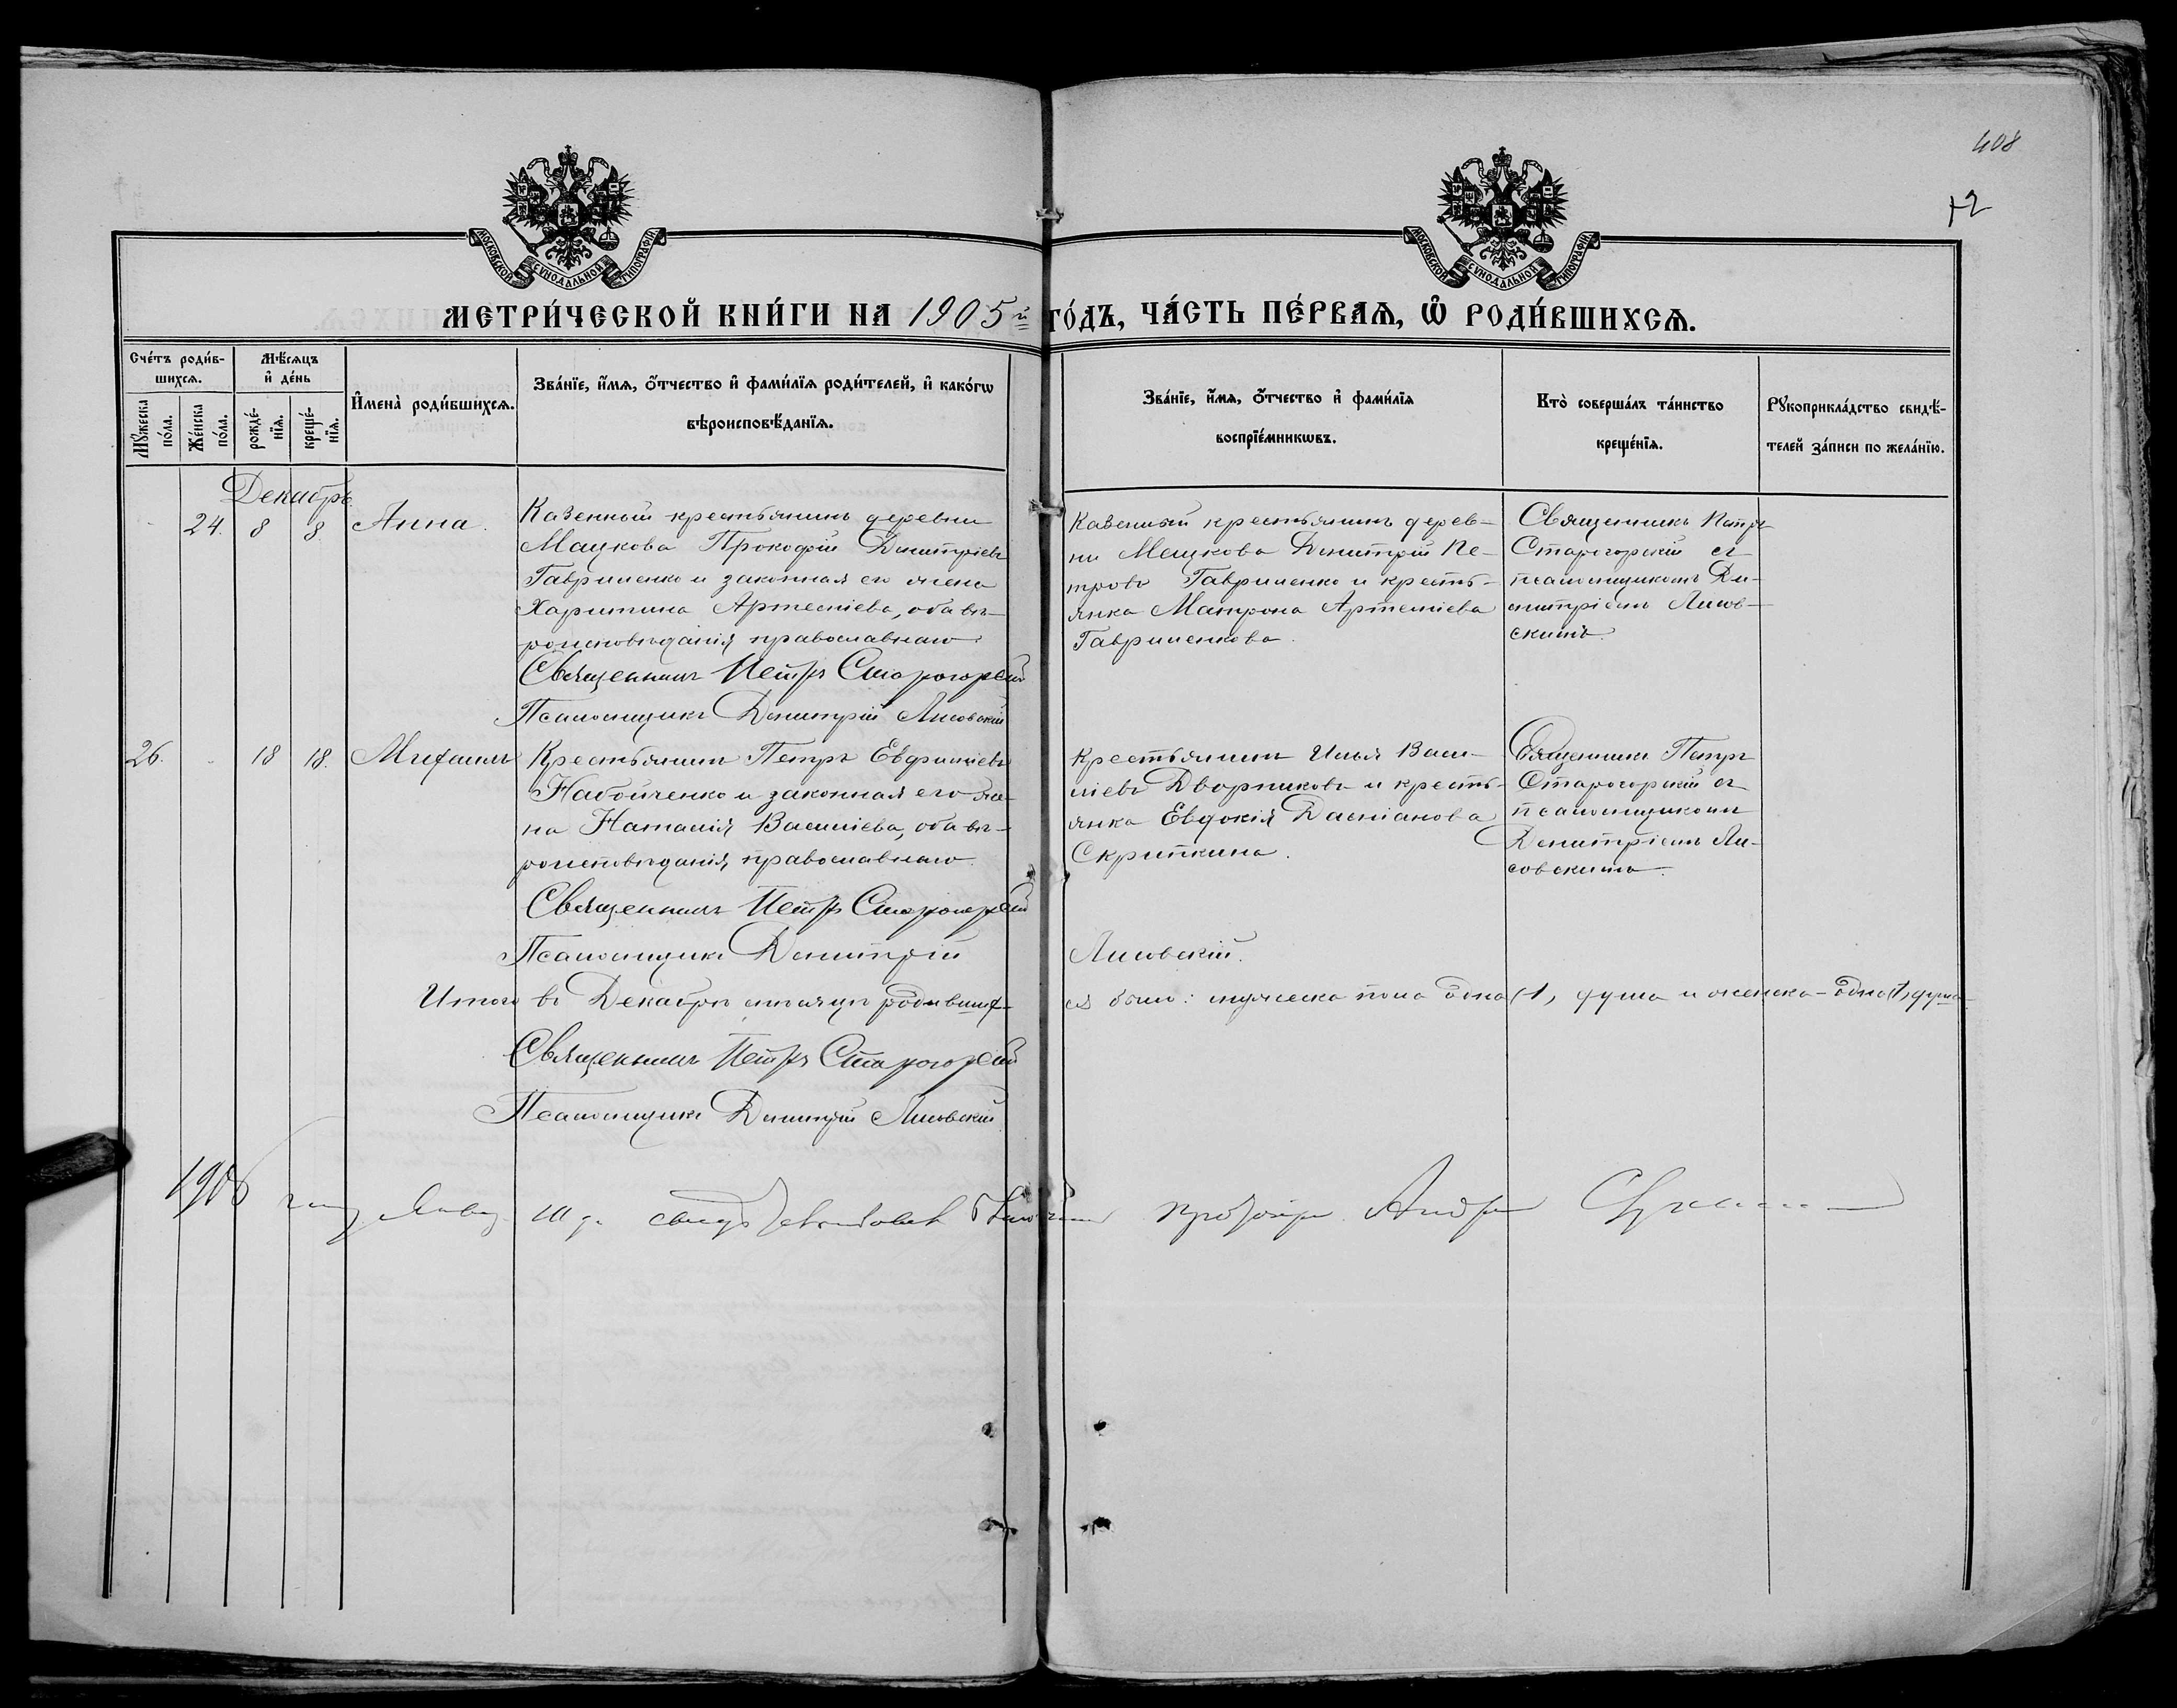 408
12
МОСКОВСКОЙ СѴНОДАЛЬНОЙ ТИПОГРАФІИ
МОСКОВСКОЙ СѴНОДАЛЬНОЙ ТИПОГРАФІИ
МЕТРИ́ЧЕСКОЙ КНИ́ГИ НА 1905й ГО́ДЪ, ЧА́СТЬ ПЕ́РВАѦ, Ѡ҆ РОДИ́ВШИХСѦ.
Сче́тъ роди́в-
шихсѧ.
Мꙋ́жеска по́ла.
Же́нска по́ла.
Мѣ́сѧцъ
и҆ де́нь
рожде́-
нїѧ.
креще́-
нїѧ.
И҆мена̀ роди́вшихсѧ.
Зва́нїе, и҆́мѧ, ѻ҆́тчество и҆ фами́лїѧ роди́телей, и҆ како́гѡ
вѣроисповѣ́данїѧ.
Зва́нїе, и҆́мѧ, ѻ҆́тчество и҆ фами́лїѧ
воспрїе́мникѡвъ.
Кто̀ соверша́лъ та́инство
креще́нїѧ.
Рꙋкоприкла́дство свидѣ́-
телей за́писи по жела́нїю.
Декабрь
24. 8 8 Анна.
Казенный крестьянинъ деревни
Мацкова Прокофій Димитріевъ
Гавриленко и законная его жена
Харитина Артеміева, оба вѣ-
роисповѣданія православнаго.
Священникъ Петръ Старогорскій
Псаломщикъ Димитрій Лисовскій
Казенный крестьянинъ дерев-
ни Мацкова Димитрій Пе-
тровъ Гавриленко и кресть-
янка Матрона Артеміева
Гавриленкова.
Священникъ Петръ
Старогорскій съ
псаломщикомъ Ди-
митріемъ Лисов-
скимъ.
26. 18 18. Михаилъ
Крестьянинъ Петръ Евфиміевъ
Набойченко и законная его же-
на Наталія Василіева, оба вѣ-
роисповѣданія православнаго.
Священникъ Петръ Старогорскій
Псаломщикъ Димитрій Лисовскій.
Крестьянинъ Илья Васи-
ліевъ Дворниковъ и кресть-
янка Евдокія Даміанова
Скрипкина.
Священникъ Петръ
Старогорскій съ
псаломщикомъ
Димитріемъ Ли-
совскимъ.
Итого въ Декабрѣ мѣсяцѣ родивших-
ся было: мужеска пола одна (1) душа и женска – одна (1) душа
Священникъ Петръ Старогорскій
Псаломщикъ Димитрій Лисовскій
1906 года